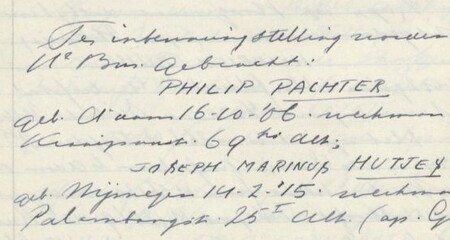 Ter inbewaringstelling worden
Ue Bur. Gebracht:
PHILIP PACHTER
geb. A'dam 16-10-'06. werkman
69 hs Alh;
JOSEPH MARINUS HUTJEY
geb. Nijmegen 14-2-'15. werkman
Palembangstr. 25 I Alh. (op.